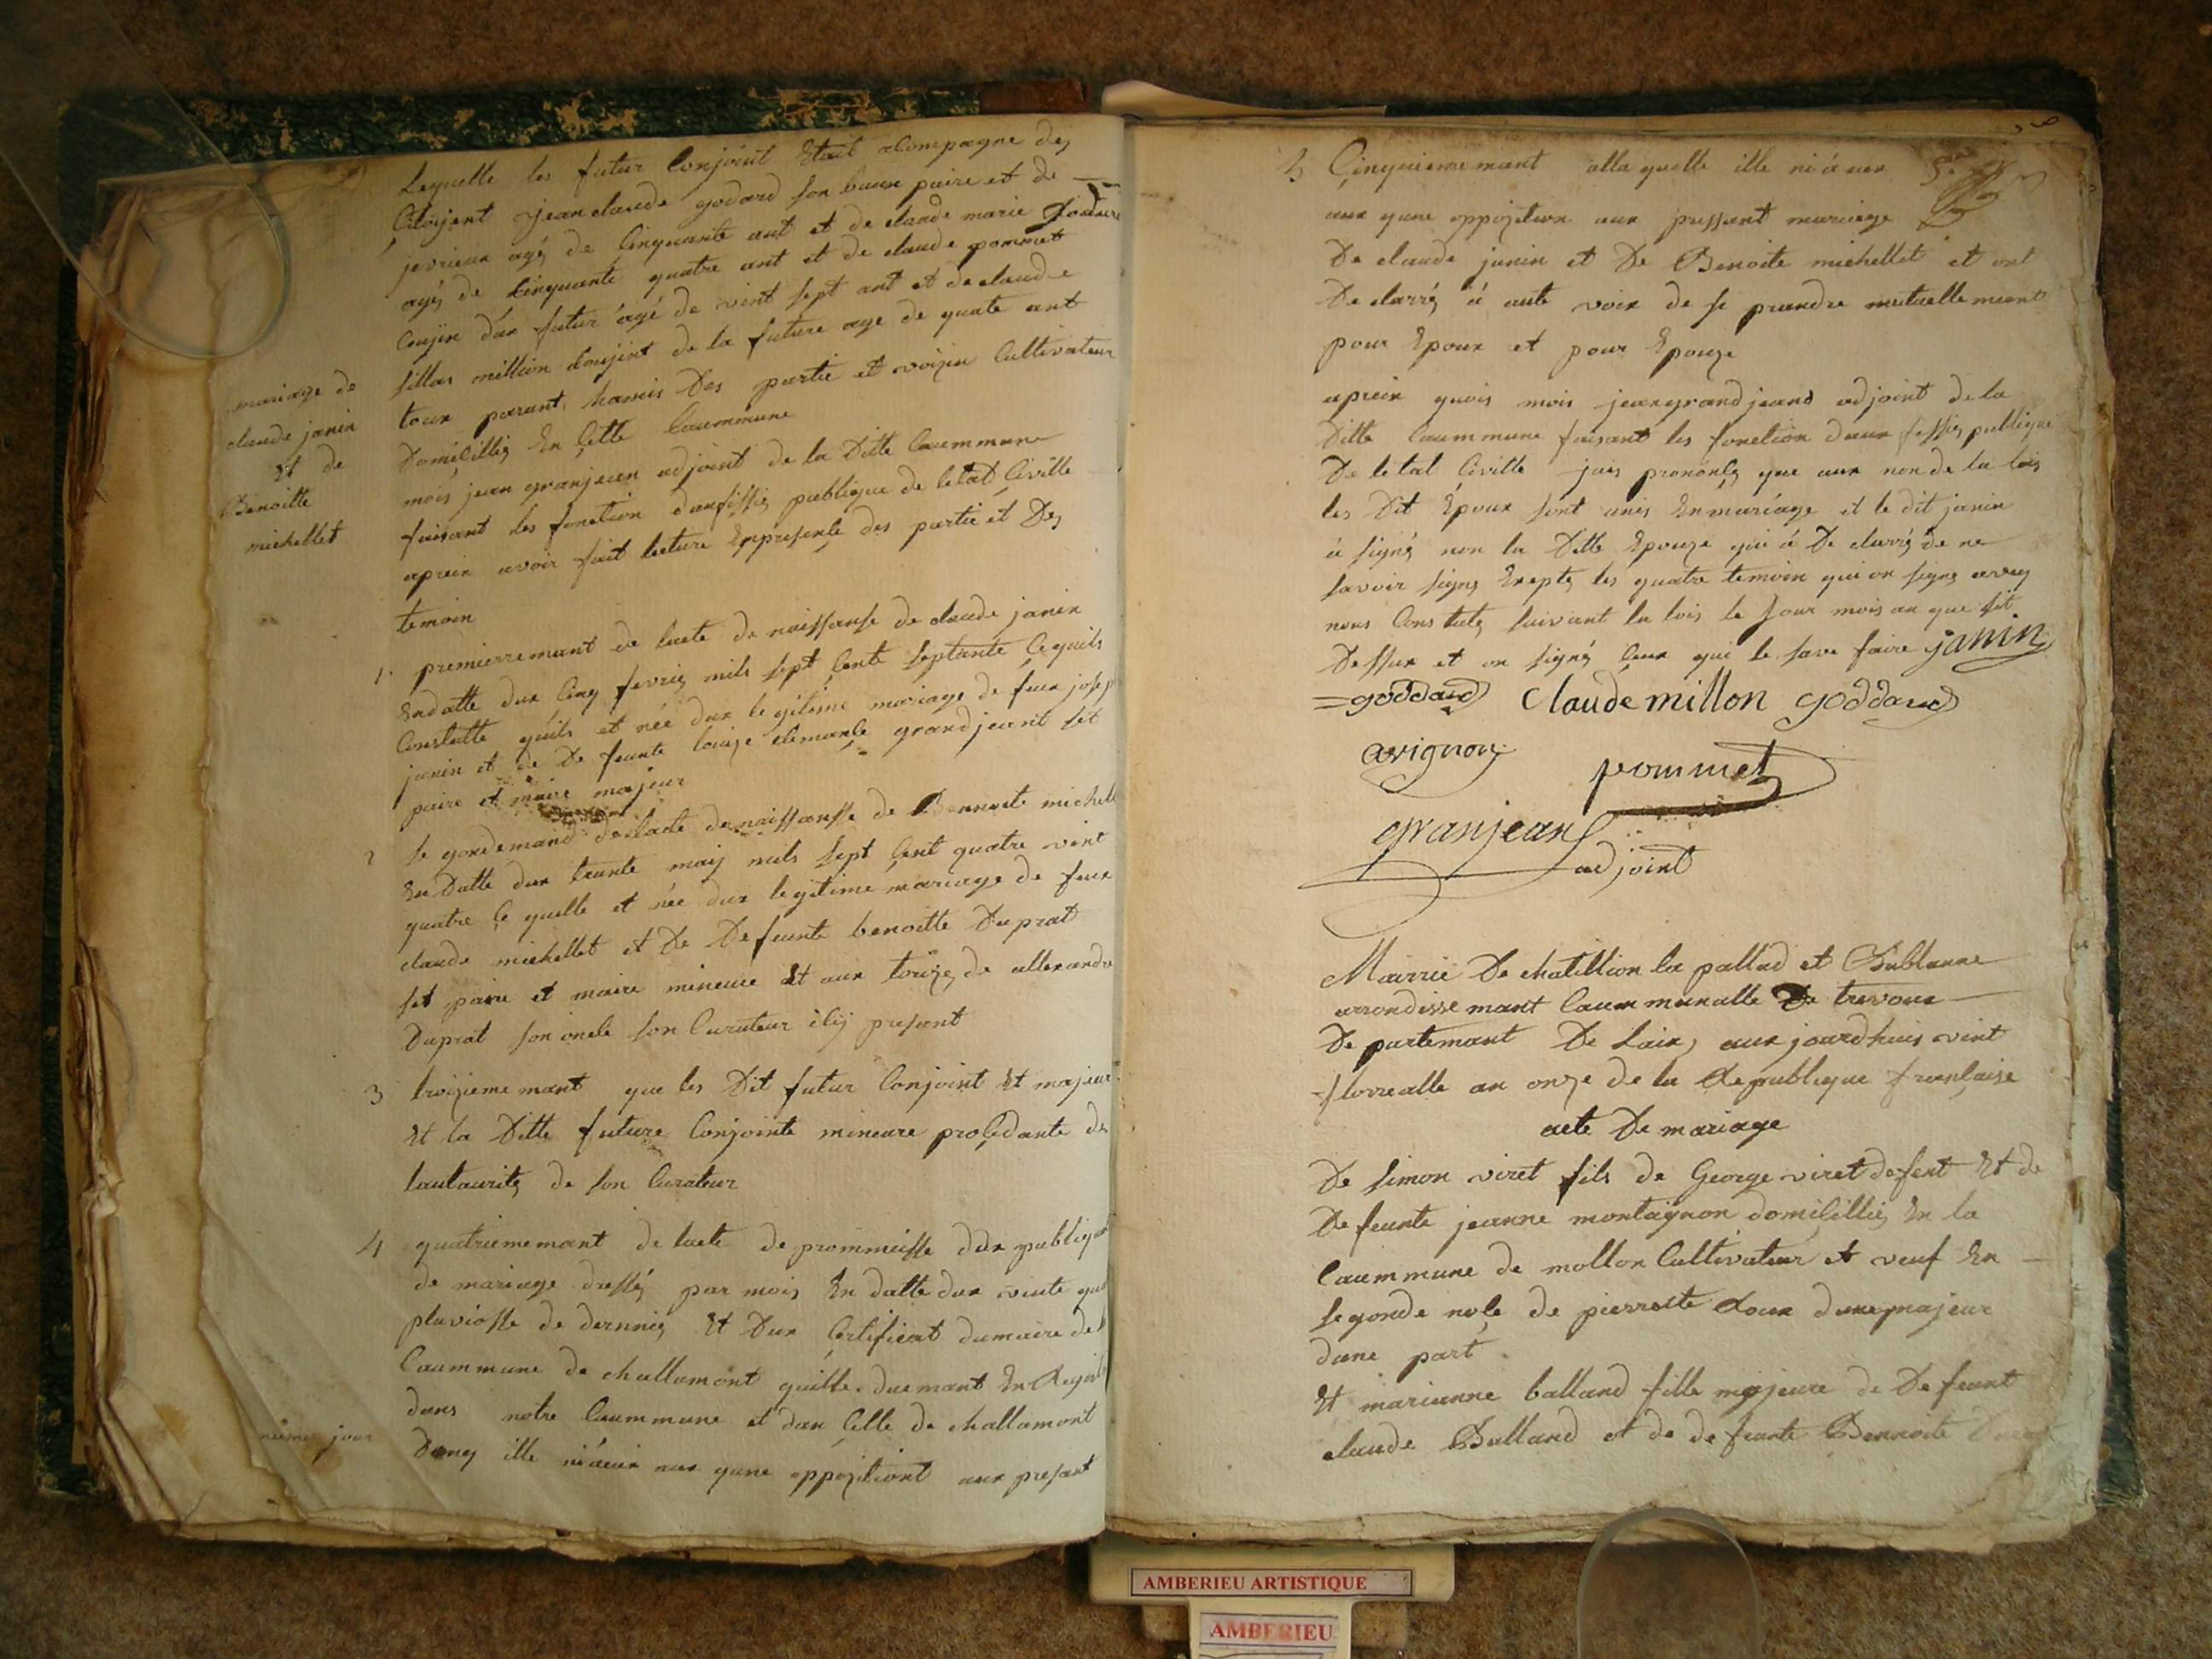 Lequelle les futur Conjoint Etait acompagne des
Citoyent jean claude godard son baux paire et de
jevrieux agés de Cinquante ant et de claude marie
agés de Cinquante quatre ant et de claude pommet
Coujin dux futur agé de vint sept ant et de claude
million Coujint de la future age de quate ant
toux parant hamis Des partie et voizin Cultivateur
Domicilliés En Cette Caummune
mariage de
claude janin
Et de
Benoitte
michellet
mois jean granjean adjoint de la Ditte Caummune
faisant les fonction daufissiés publique de letat Civille
aprein avoir fait lecture Enpresente des partie et Des
temoin
1. premierremant de lacte de naissanse de claude janin
Endatte dux Cinq fevriés mils sept Cente septante Cequils
Constatte quils et née dux legitisme mariage de feux josep
janin et de De feunte louize clemance grandjeant set
paire et maire majeur
2 segondemand delacte denaissansse de Bennoite michell
En Datte dux trante maij mils sept Cent quatre vint
quatre Ce quelle et née dux legitime mariage de feux
claude michellet et De Defeunte benoitte Duprat
set paire et maire mineure Et aux torizés de allexandre
Duprat son oncle son Curateur icij present
3 troizieme mant que les Dit futur Conjoint Et majeur
Et la Ditte future Conjointe mineure procedante de
lautaurités de son Curateur
4 quatriememant de lacte de prommeisse dux publiq
de mariage dressés par mois En datte dux vinte qua
pluviosse de dernniés Et Dux Certificat dumaire de l
Caummune de challamont quille duemant En Regist
dans notre Caummune et dan Celle de challamont
nieme jour
Donq ille niáeux aux qune oppozitiont aux presant
5 Cinquiememant alla quelle ille ni á eux
aux qune oppozition aux pressant mariage
De claude janin et De Benoite michellet et ont
De clarrés á aute voix de se prandre mutuellemeant
pour Epoux et pour Epouze
aprein quois mois jean grand jeand adjoint de la
Ditte Caummune faisant les fonction daux fissiés publique
De letat Civille jais prononcés que aux non de la lois
les Dit Epoux sont unis Enmáriage et le dit janin
á signés non la Ditte Epouze qui á De clarrés de ne
savoir signe Exeptes les quatre temoin qui on signe aveq
nous Constates suivant la lois le Jour mois an que sit
Dessux et on signés Ceux qui le save faire janin
=goddard Claude millon goddard
avignon
pommet
granjean
adjoint
Mairrie De chatillion la pallud et Bublanne
arrondissemant Caummunalle De trevoux
De partemant De Lain, aux jourdhuis vint
florrealle an onze de la Republique française
acte De mariage
De simon viret fils de George viret defent Et de
De feunte jeanne montagnon domicilliés En la
Caummune de mollon Cultivateur et veuf En
segonde noce de pierrette Roux dune majeur
dune part
Et marianne balland fille majeure de De feunt
claude Balland et de de feunte Bennoite
AMBERIEU ARTISTIQUE
AMBERIEU